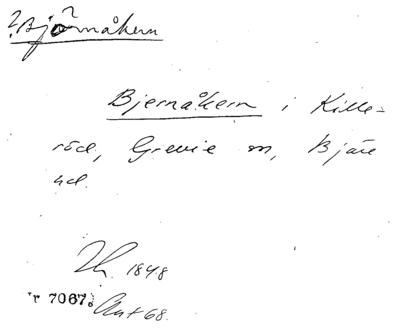 ? ?
Björnåkern
Bjernåkern i Kille-
röd, Grevie sn, Bjäre
hd.
Th. 1848
7067. Ant 68.